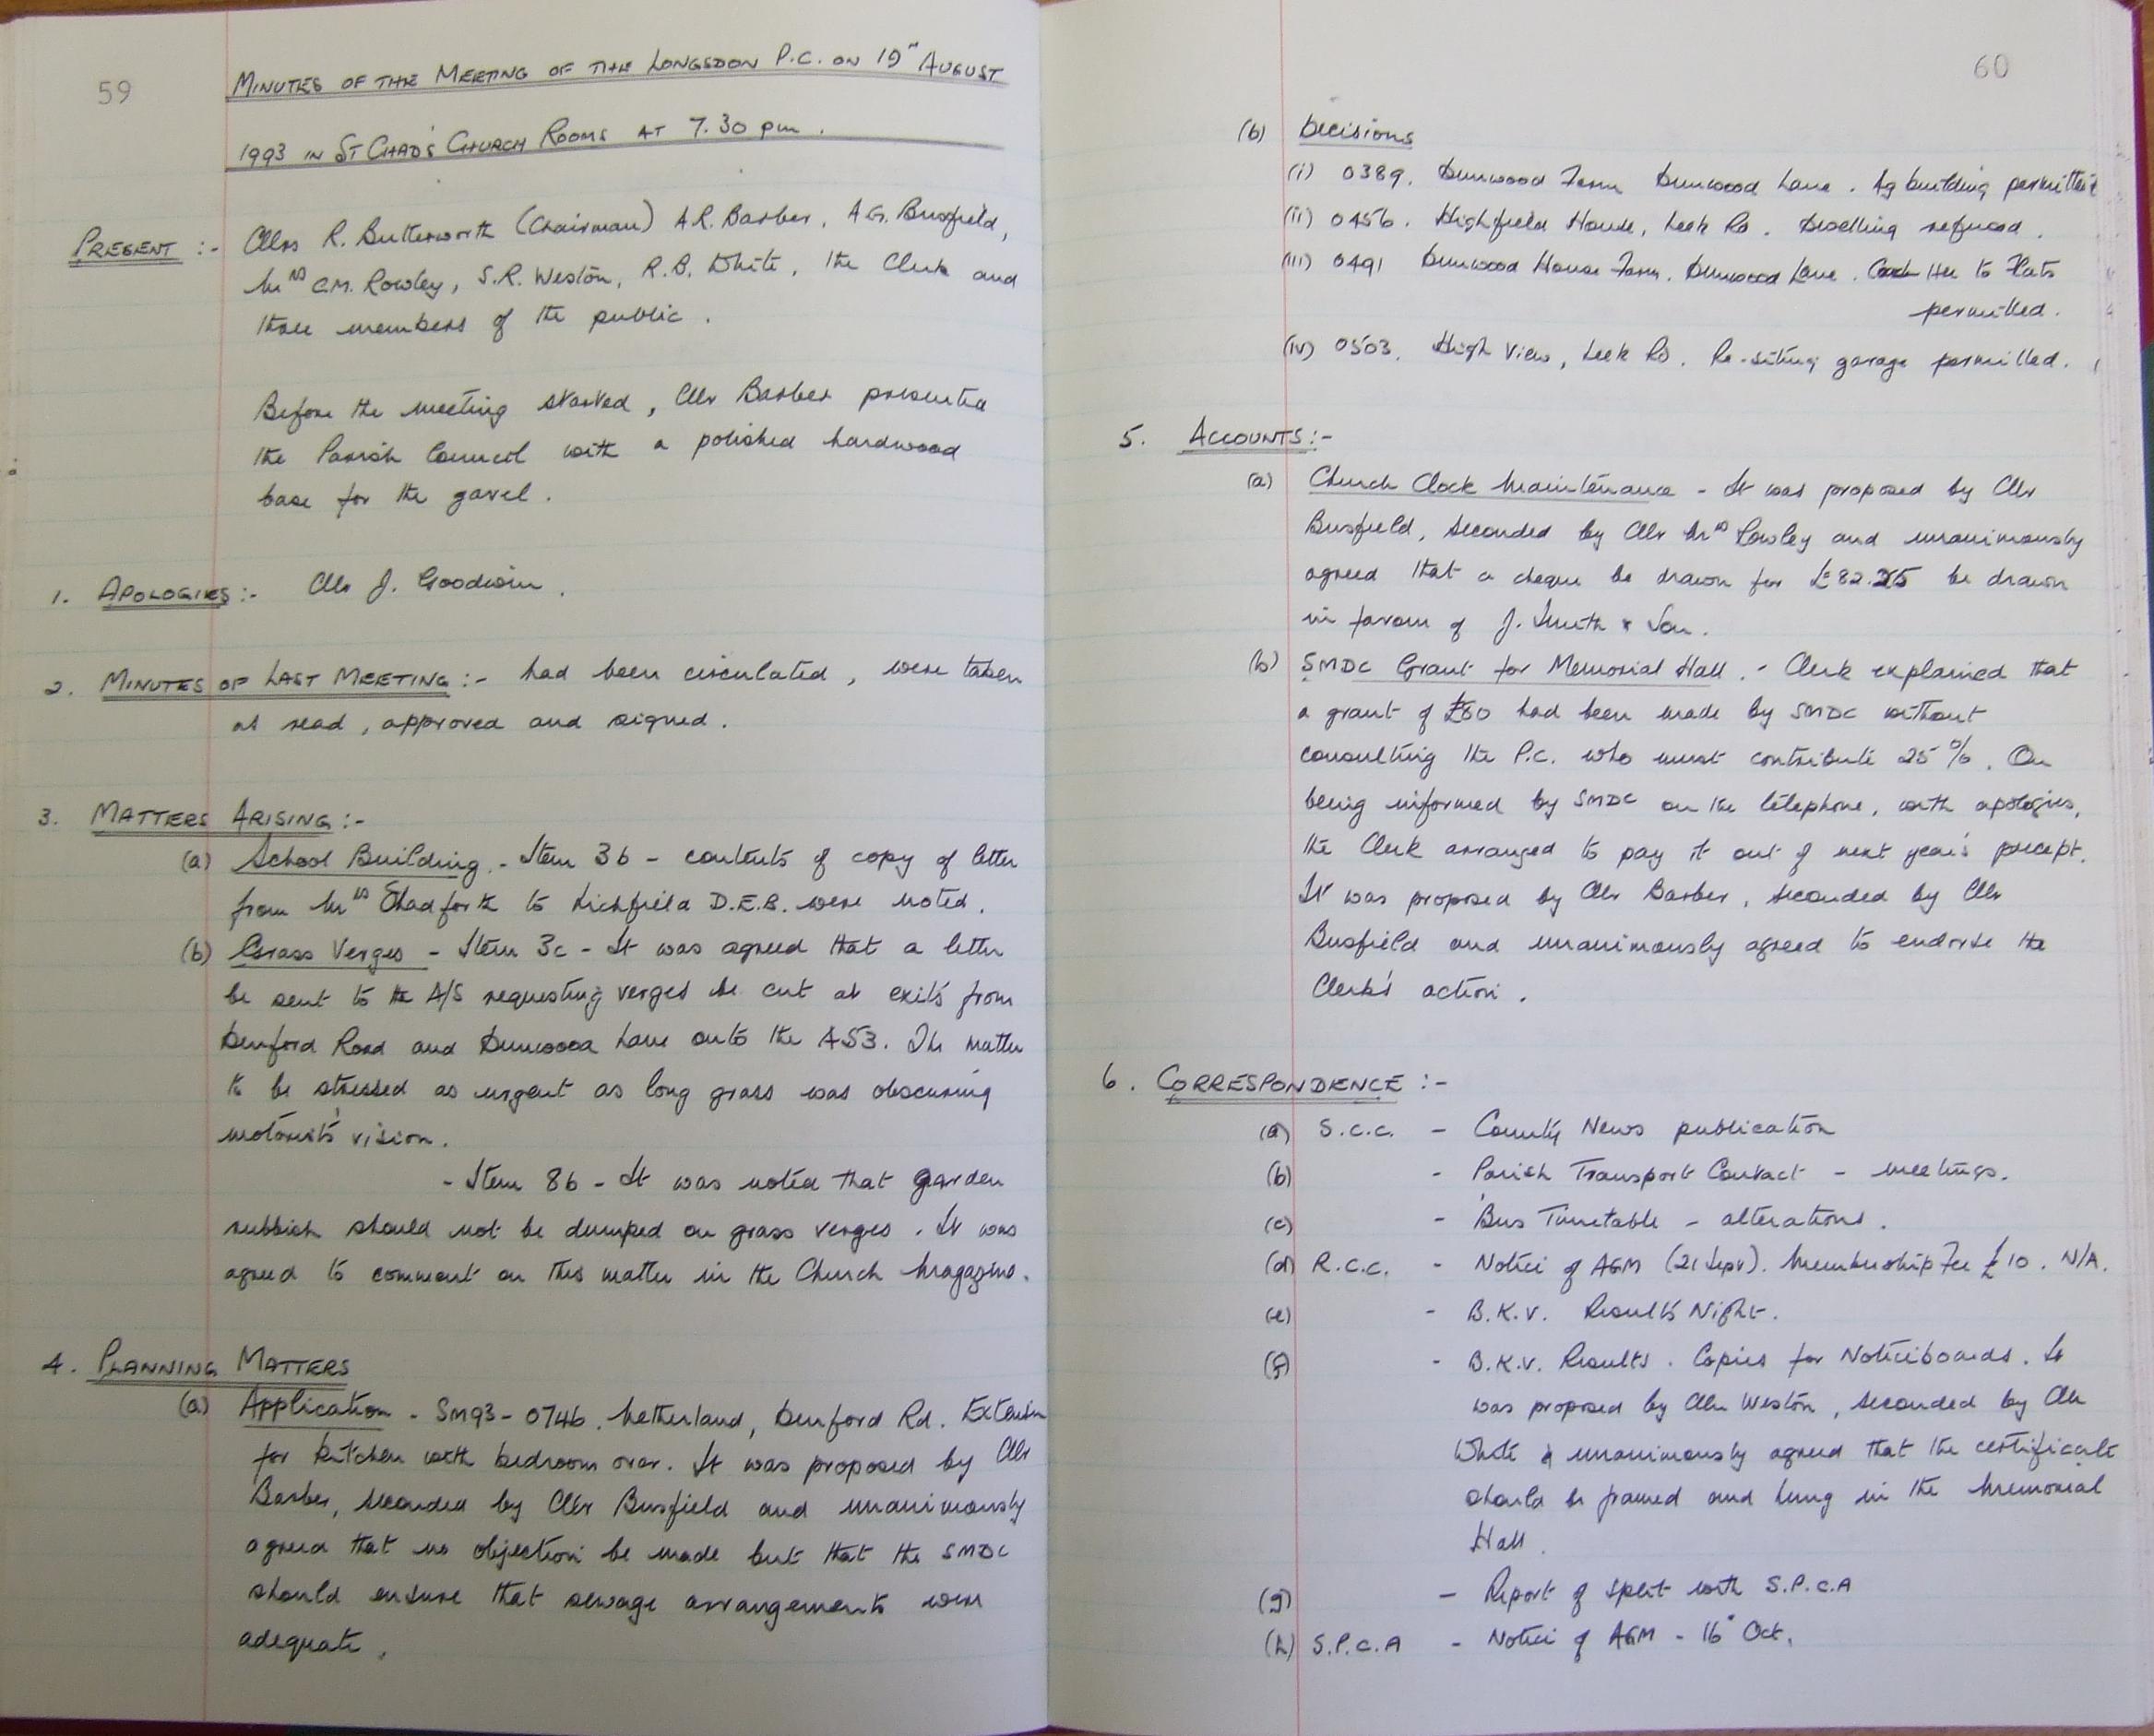 59
MINUTES OF THE MEETING OF THE LONGSDON P.C. ON 19th AUGUST
1993 IN ST CHAD'S CHURCH ROOMS AT 7.30 pm.
PRESENT :- Cllrs R. Butterworth (Chairman) A.R. Barber, A.G. Busfield,
Mrs C.M. Rowley, S.R. Weston, R.B. White, the Clerk and
three members of the public.
Before the meeting started, Cllr Barber presented
the Parish Council with a polished hardwood
base for the gavel.
1. APOLOGIES :- Cllr J. Goodwin.
2. MINUTES OF LAST MEETING :- had been circulated, were taken
as read, approved and signed.
3. MATTERS ARISING :-
(a) School Building - Item 3b - contents of copy of letter
from Mrs Shadforth to Lichfield D.E.B. were noted.
(b) Grass Verges - Item 3c - It was agreed that a letter
be sent to the A/S requesting verges be cut at exits from
Denford Road and Dunwood Lane onto the A53. The matter
to be stressed as urgent as long grass was obscuring
motorist's vision.
- Item 8b - It was noted that garden
rubbish should not be dumped on grass verges. It was
agreed to comment on this matter in the Church Magazine.
4. PLANNING MATTERS
(a) Application - SM93-0746. Netherland, Denford Rd. Extension
for kitchen with bedroom over. It was proposed by Cllr
Barber, seconded by Cllr Busfield and unanimously
agreed that no objection be made but that the SMDC
should ensure that sewage arrangements were
adequate.
60
(b) Decisions
(i) 0389. Dunwood Farm Dunwood Lane. Ag building permitted
(ii) 0456. Highfield House, Leek Rd. Dwelling refused.
(iii) 0491 Dunwood House Farm. Dunwood Lane. Coach Hse to Flats
permitted.
(iv) 0503. High View, Leek Rd. Re-siting garage permitted.
5. ACCOUNTS :-
(a) Church Clock Maintenance - It was proposed by Cllr
Busfield, seconded by Cllr Mrs Rowley and unanimously
agreed that a cheque be drawn for £82.25 be drawn
in favour of J. Smith & Son.
(b) SMDC Grant for Memorial Hall. - Clerk explained that
a grant of £80 had been made by SMDC without
consulting the P.C. who must contribute 25%. On
being informed by SMDC on the telephone, with apologies,
the Clerk arranged to pay it out of next year's precept.
It was proposed by Cllr Barber, seconded by Cllr
Busfield and unanimously agreed to endorse the
Clerk's action.
6. CORRESPONDENCE :-
(a) S.C.C. - County News publication
(b) - Parish Transport Contact - meetings.
(c) - Bus Timetable - alterations.
(d) R.C.C. - Notice of AGM (21 Sept). Membership Fee £10. N/A.
(e) - B.K.V. Results Night.
(f) - B.K.V. Results. Copies for Noticeboards. It
was proposed by Cllr Weston, seconded by Cllr
White & unanimously agreed that the certificate
should be framed and hung in the Memorial
Hall.
(g) - Report of split with S.P.C.A
(h) S.P.C.A - Notice of AGM - 16th Oct.